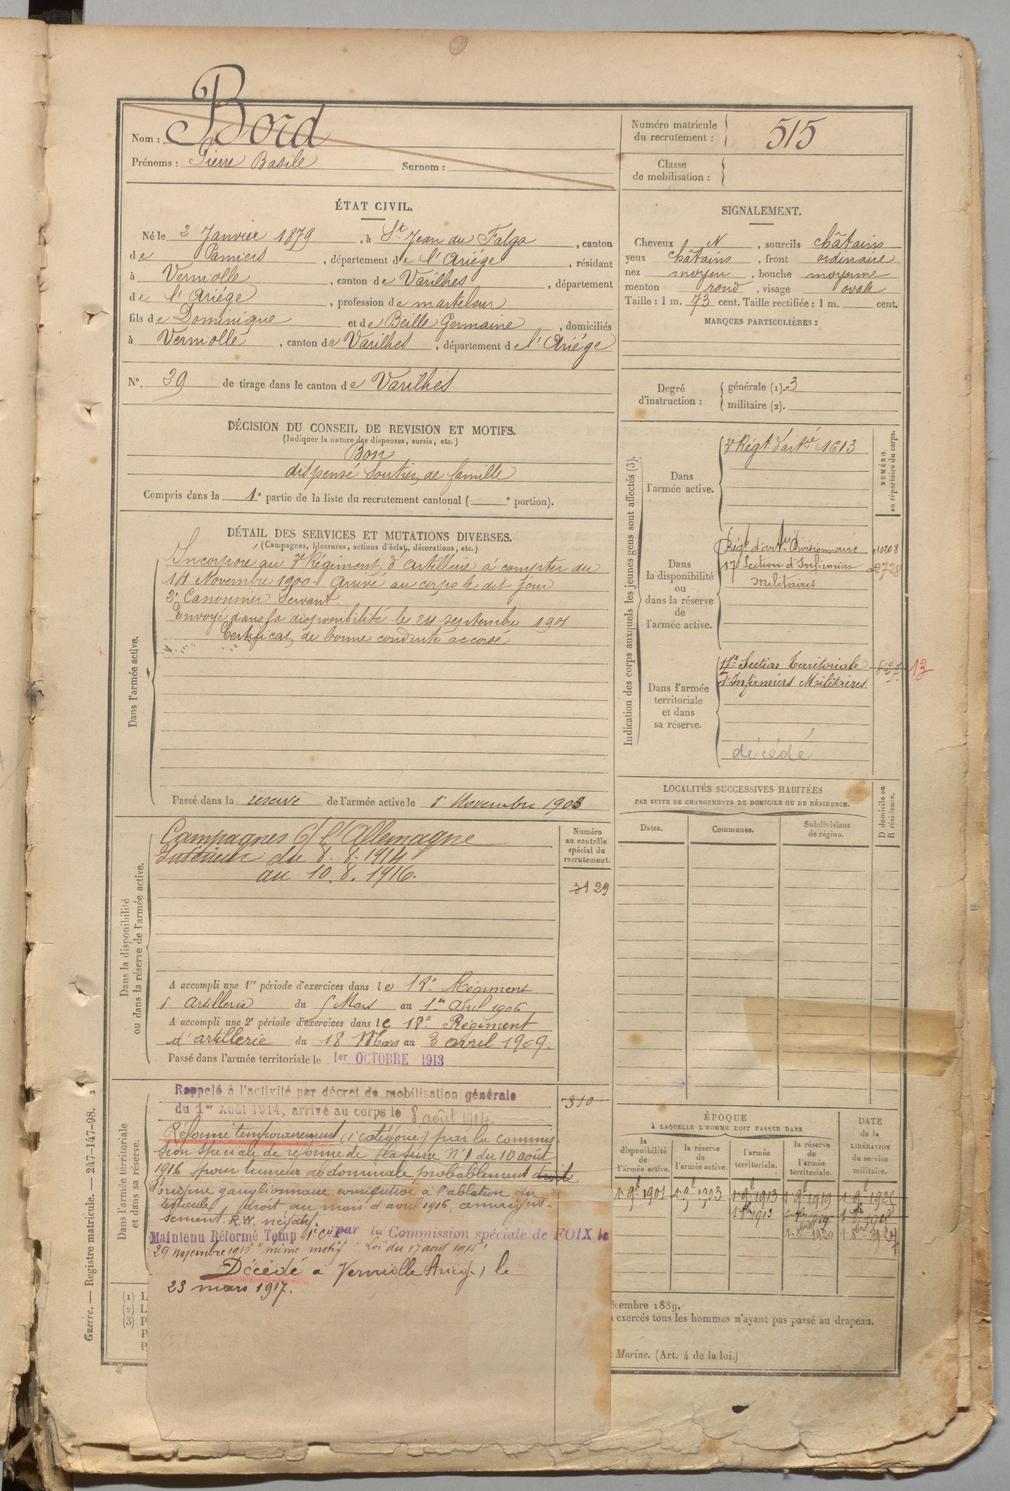 Nom : Bord
Prénoms : Pierre Basile Surnom :
Numéro matricule du recrutement : 515
Classe de mobilisation :
ÉTAT CIVIL.
Né le 2 Janvier 1879, à St Jean du Falga, canton
de Pamiers, département de l'Ariége, résidant
à Verniolle, canton de Varilhes, département
de l'Ariége, profession de marteleur
fils de Dominique et de Beille Germaine, domiciliés
à Verniolle, canton de Varilhes, département de l'Ariége
N° 39 de tirage dans le canton de Varilhes
SIGNALEMENT.
Cheveux N, sourcils châtains
yeux châtains, front ordinaire
nez moyen, bouche moyenne
menton rond, visage ovale
Taille : 1 m. 73 cent. Taille rectifiée : 1 m. cent.
MARQUES PARTICULIÈRES :
Degré d'instruction : générale (1). 3
militaire (2).
DÉCISION DU CONSEIL DE REVISION ET MOTIFS.
(Indiquer la nature des dispenses, sursis, etc.)
Bon
dispensé soutien de famille
Compris dans la 1e partie de la liste du recrutement cantonal ( e portion).
DÉTAIL DES SERVICES ET MUTATIONS DIVERSES.
(Campagnes, blessures, actions d'éclat, décorations, etc.)
Dans l'armée active.
Incorporé au Régiment d'Artillerie à compter du
14 Novembre 1900. Arrivé au corps le dit jour
2e Canonnier Servant.
Envoyé dans la disponibilité le 21 septembre 1901
Certificat de bonne conduite accordé
Passé dans la réserve de l'armée active le 1er Novembre 1903
Indication des corps auxquels les jeunes gens sont affectés (3).
NUMÉRO au répertoire du corps.
Dans l'armée active.
Régt d'artie 1613
Dans la disponibilité ou dans la réserve de l'armée active.
Régt d'artie Divisionnaire
17e Section d'Infirmiers
Militaires
Dans l'armée territoriale et dans sa réserve.
17e Section Territoriale
d'Infirmiers Militaires
13
décédé
LOCALITÉS SUCCESSIVES HABITÉES
PAR SUITE DE CHANGEMENTS DE DOMICILE OU DE RÉSIDENCE.
D domicile ou R résidence.
Dates. Communes. Subdivisions de région.
Dans la disponibilité ou dans la réserve de l'armée active.
Campagnes C/ l'Allemagne
Intérieur du 8.8.1914
au 10.8.1916.
Numéro au contrôle spécial du recrutement.
3129
A accompli une 1re période d'exercices dans le 18e Régiment
d'Artillerie du 5 Mars au 1er Avril 1906
A accompli une 2e période d'exercices dans le 18e Régiment
d'artillerie du 18 Mars au 3 avril 1909.
Passé dans l'armée territoriale le 1er OCTOBRE 1913
Dans l'armée territoriale et dans sa réserve.
Rappelé à l'activité par décret de mobilisation générale
du 1er Août 1914, arrivé au corps le 8 août 1914.
310
Réformé temporairement (1e catégorie) par la commis
sion spéciale de réforme de classure N° 1 du 10 août
1916 pour tumeur abdominale probablement droite
d'origine ganglionnaire consécutive à l'ablation du
testicule droit au mois d'avril 1916, amaigris-
sement. R.W. négatif
Maintenu Réformé Temp 1e cie par la Commission spéciale de FOIX le
29 novembre 1916 "même motif"
Décédé à Verniolle Ariège, le
23 mars 1917.
ÉPOQUE
À LAQUELLE L'HOMME DOIT PASSER DANS
la disponibilité de l'armée active.
la réserve de l'armée active.
l'armée territoriale.
la réserve de l'armée territoriale.
DATE de la LIBÉRATION du service militaire.
Guerre. — Registre matricule. — 247-147-98.
décembre 1889.
exercés tous les hommes n'ayant pas passé au drapeau.
Marine. (Art. 4 de la loi.)